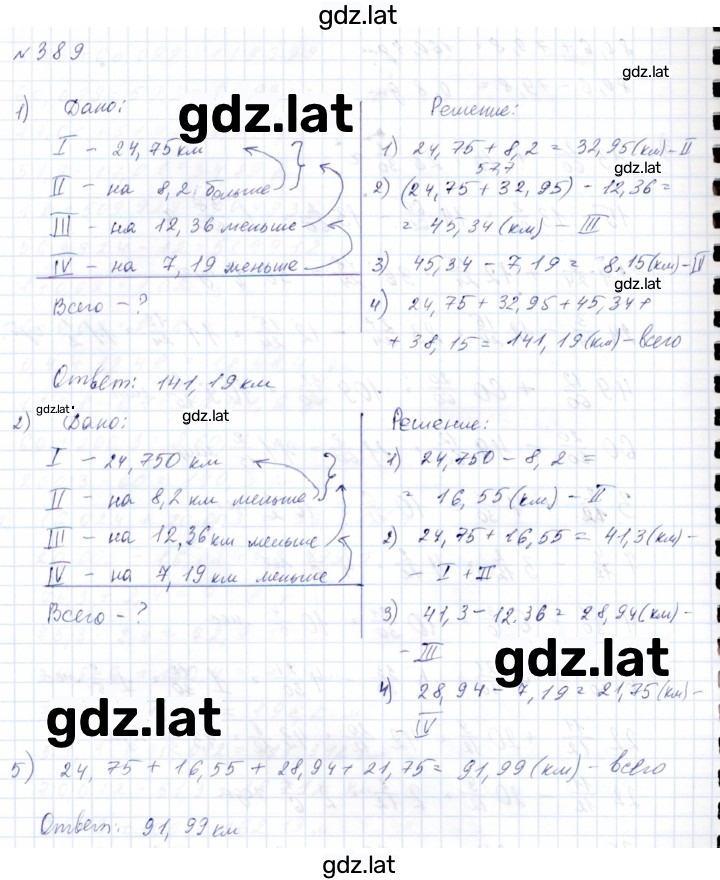 gdz.lat
№389
gdz.lat
1) Дано:
gdz.lat
I - 24,75 км
II - на 8,2 больше
III - на 12,36 меньше
IV - на 7,19 меньше
Всего - ?
Решение:
1) 24,75 + 8,2 = 32,95 (км) - II
57,7
gdz.lat
2) (24,75 + 32,95) - 12,36 =
= 45,34 (км) - III
3) 45,34 - 7,19 = 8,15 (км) - IV
gdz.lat
4) 24,75 + 32,95 + 45,34 +
+ 38,15 = 141,19 (км) - всего
Ответ: 141,19 км
gdz.lat
gdz.lat
2) Дано:
I - 24,750 км
II - на 8,2 км меньше
III - на 12,36 км меньше
IV - на 7,19 км меньше
Всего - ?
Решение:
1) 24,750 - 8,2 =
= 16,55 (км) - II
2) 24,75 + 16,55 = 41,3 (км) -
- I + II
3) 41,3 - 12,36 = 28,94 (км) -
- III
gdz.lat
4) 28,94 - 7,19 = 21,75 (км) -
- IV
gdz.lat
5) 24,75 + 16,55 + 28,94 + 21,75 = 91,99 (км) - всего
Ответ: 91,99 км
gdz.lat